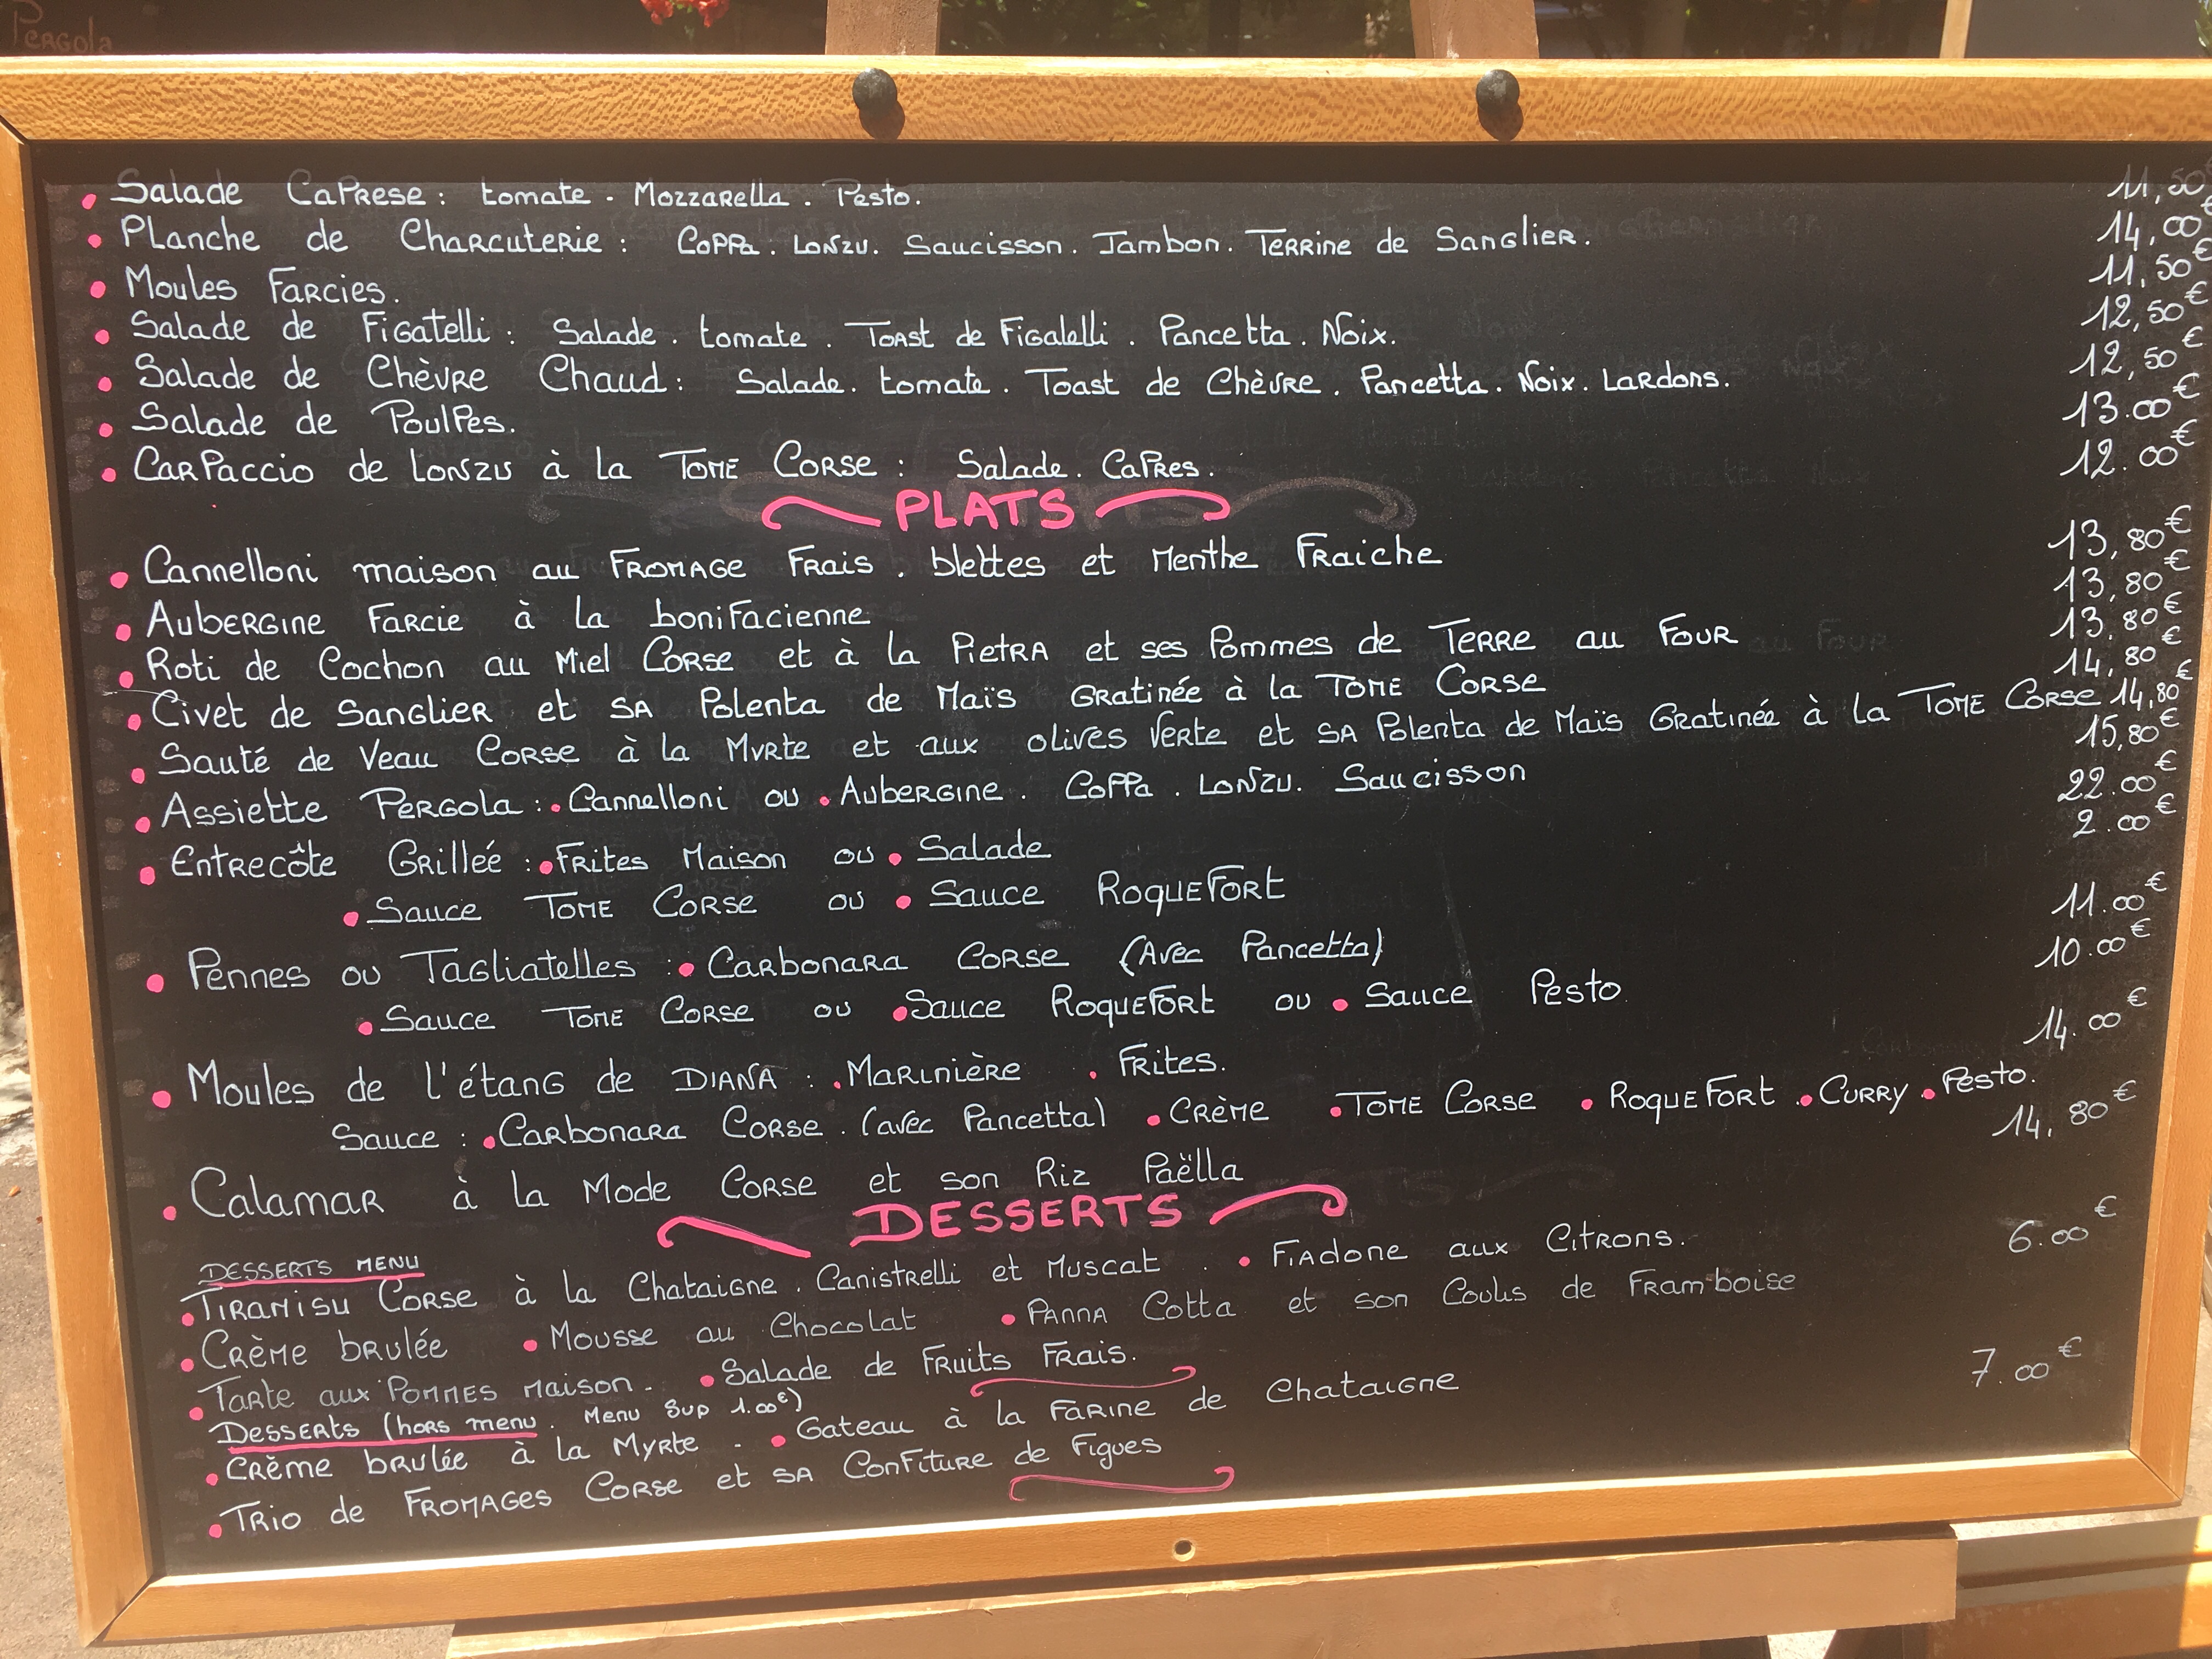 Pergola
• Salade Caprese : tomate . Mozzarella . Pesto. 11,50€
• Planche de Charcuterie : Coppa . Lonzu . Saucisson . Jambon . Terrine de Sanglier. 14,00€
• Moules Farcies. 11,50€
• Salade de Figatelli : Salade . tomate . Toast de Figatelli . Pancetta . Noix. 12,50€
• Salade de Chèvre Chaud : Salade . tomate . Toast de Chèvre . Pancetta . Noix . Lardons. 12,50€
• Salade de Poulpes. 13.00€
• Carpaccio de Lonzu à la Tome Corse : Salade . Capres. 12.00€
PLATS
• Cannelloni maison au Fromage Frais . blettes et Menthe Fraiche 13,80€
• Aubergine Farcie à la bonifacienne 13,80€
• Roti de Cochon au Miel Corse et à la Pietra et ses Pommes de Terre au Four 13,80€
• Civet de Sanglier et sa Polenta de Maïs Gratinée à la Tome Corse 14,80€
• Sauté de Veau Corse à la Myrte et aux olives Verte et sa Polenta de Maïs Gratinée à la Tome Corse 14,80€
• Assiette Pergola : • Cannelloni ou • Aubergine . Coppa . Lonzu . Saucisson 15,80€
• Entrecôte Grilleé : • Frites Maison ou • Salade 22.00€
• Sauce Tome Corse ou • Sauce Roquefort 2.00€
• Pennes ou Tagliatelles : • Carbonara Corse (Avec Pancetta) 11.00€
• Sauce Tome Corse ou • Sauce Roquefort ou • Sauce Pesto 10.00€
• Moules de l'étang de DIANA : . Marinière . Frites. 14.00€
Sauce : • Carbonara Corse . (avec Pancetta) • Crème • Tome Corse • Roquefort • Curry • Pesto.
• Calamar à la Mode Corse et son Riz Paëlla 14,80€
DESSERTS
DESSERTS MENU
• Tiramisu Corse à la Chataigne . Canistrelli et Muscat . • Fiadone aux Citrons. 6.00€
• Crème brulée • Mousse au Chocolat • Panna Cotta et son Coulis de Framboise
• Tarte aux Pommes Maison . • Salade de Fruits Frais.
Desserts (hors menu . Menu Sup 1.00€)
• Crème brulée à la Myrte . • Gateau à la Farine de Chataigne 7.00€
• Trio de Fromages Corse et sa Confiture de Figues